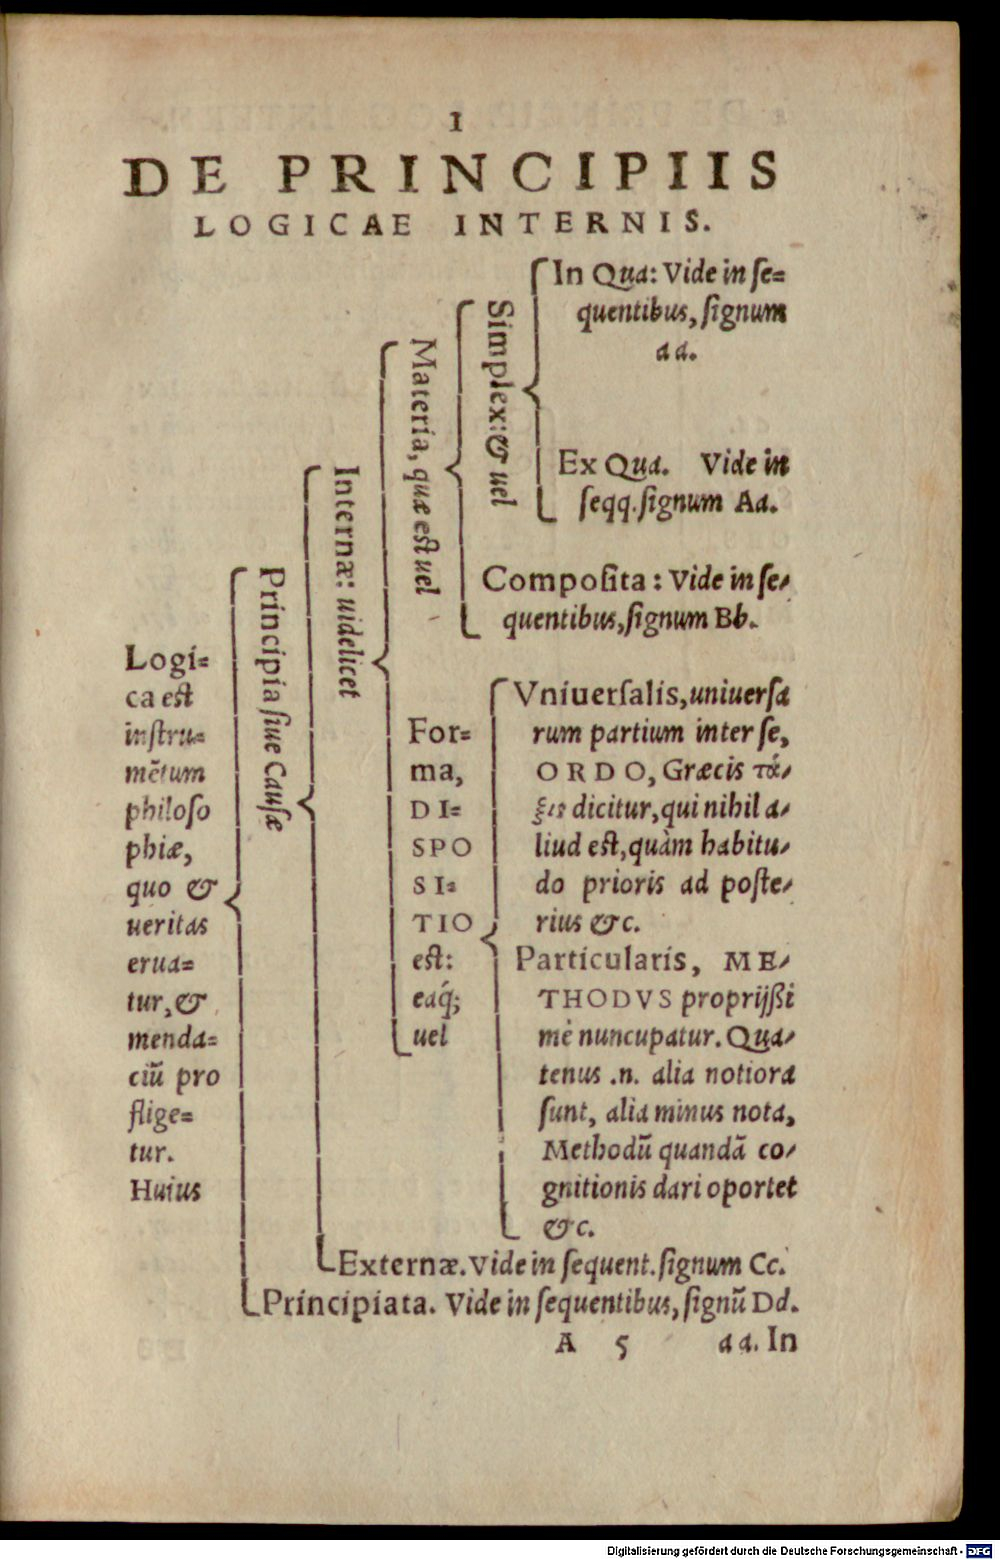 1
DE PRINCIPIIS
LOGICAE INTERNIS.
Logi=
ca est
instru=
mētum
philoso
phiæ,
quo &
ueritas
erua=
tur, &
menda=
ciū pro
flige=
tur.
Huius
Principia siue Causæ
Internæ: uidelicet
Materia, quæ est uel
Simplex: & uel
In Qua: Vide in se=
quentibus, signum
aa.
Ex Qua. Vide in
seqq. signum Aa.
Composita: Vide in se-
quentibus, signum Bb.
For=
ma,
DI=
SPO
SI=
TIO
est:
eáq;
uel
Vniuersalis, uniuersa
rum partium inter se,
ORDO, Græcis τά-
ξις dicitur, qui nihil a-
liud est, quàm habitu-
do prioris ad poste-
rius &c.
Particularis, ME-
THODVS proprijßi
mè nuncupatur. Qua-
tenus .n. alia notiora
sunt, alia minus nota,
Methodū quandā co-
gnitionis dari oportet
&c.
Externæ. Vide in sequent. signum Cc.
Principiata. Vide in sequentibus, signū Dd.
A 5 aa. In
Digitalisierung gefördert durch die Deutsche Forschungsgemeinschaft - DFG